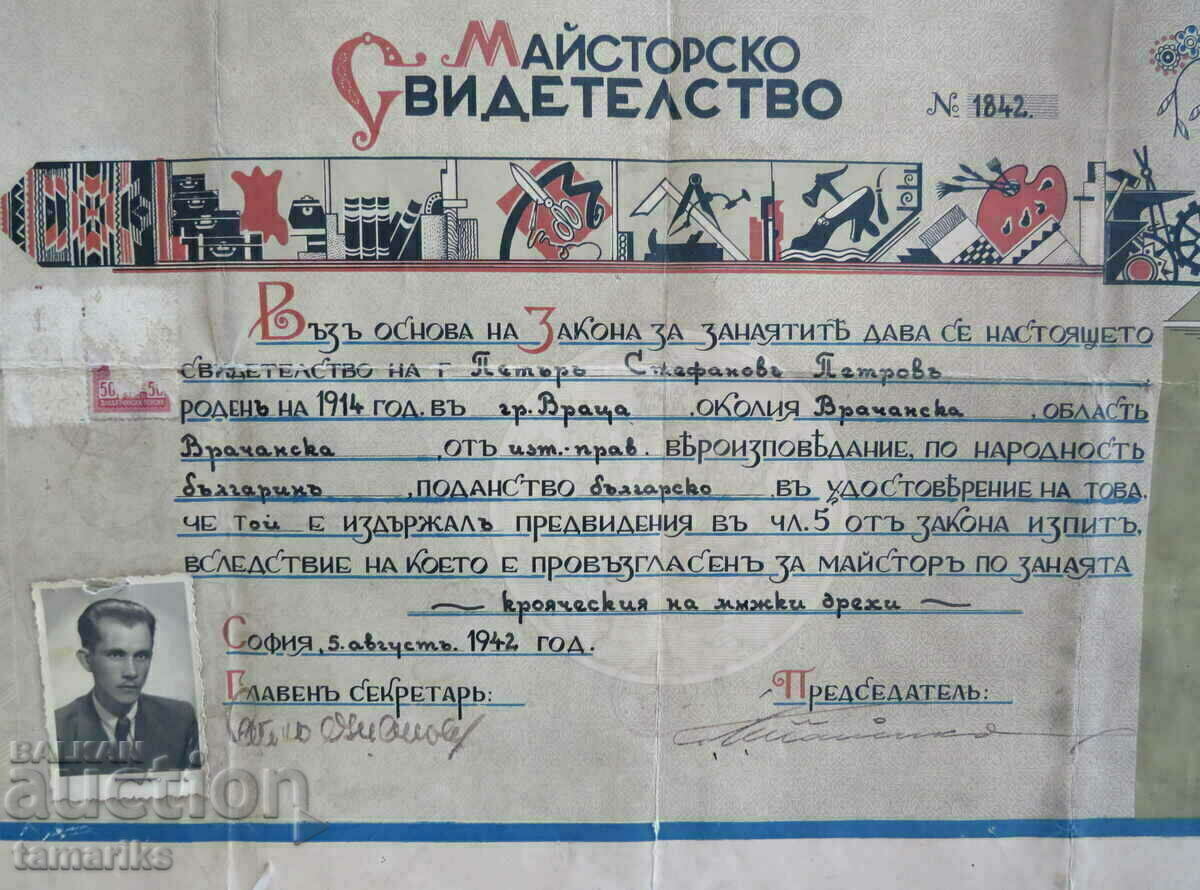 МАЙСТОРСКО
СВИДЕТЕЛСТВО
№ 1842.
ВЪЗЪ ОСНОВА НА ЗАКОНА ЗА ЗАНАЯТИТѢ ДАВА СЕ НАСТОЯЩЕТО
СВИДЕТЕЛСТВО НА Г Петъръ Стефановъ Петровъ
50 50
РОДЕНЪ НА 1914 ГОД. ВЪ гр. Враца, ОКОЛИЯ Врачанска, ОБЛАСТЬ
Врачанска, ОТЪ изт.-прав. ВѢРОИЗПОВѢДАНИЕ, ПО НАРОДНОСТЬ
българинъ, ПОДАНСТВО българско, ВЪ УДОСТОВѢРЕНИЕ НА ТОВА,
ЧЕ ТОЙ Е ИЗДЪРЖАЛЪ ПРЕДВИДЕНИЯ ВЪ ЧЛ. 5 ОТЪ ЗАКОНА ИЗПИТЪ,
ВСЛЕДСТВИЕ НА КОЕТО Е ПРОВЪЗГЛАСЕНЪ ЗА МАЙСТОРЪ ПО ЗАНАЯТА
— крояческия на мѫжки дрехи —
СОФИЯ, 5. августъ. 1942 ГОД.
ГЛАВЕНЪ СЕКРЕТАРЬ:
ПРЕДСЕДАТЕЛЬ:
BALKAN
auction
tamariks